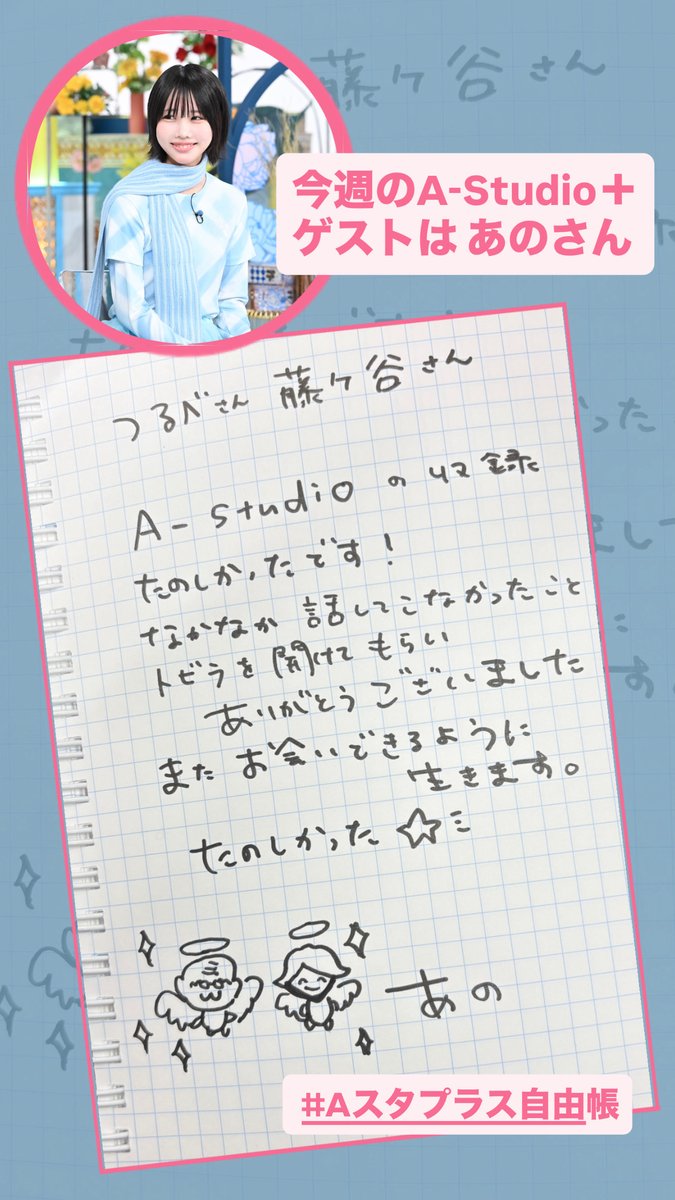 今週のA-Studio＋
ゲストは あのさん
つるべさん 藤ヶ谷さん
A-Studioの収録
たのしかったです！
なかなか 話してこなかったこと
トビラを開けてもらい
ありがとうございました
また お会いできるように
生きます。
たのしかった☆ミ
あの
#Aスタプラス自由帳